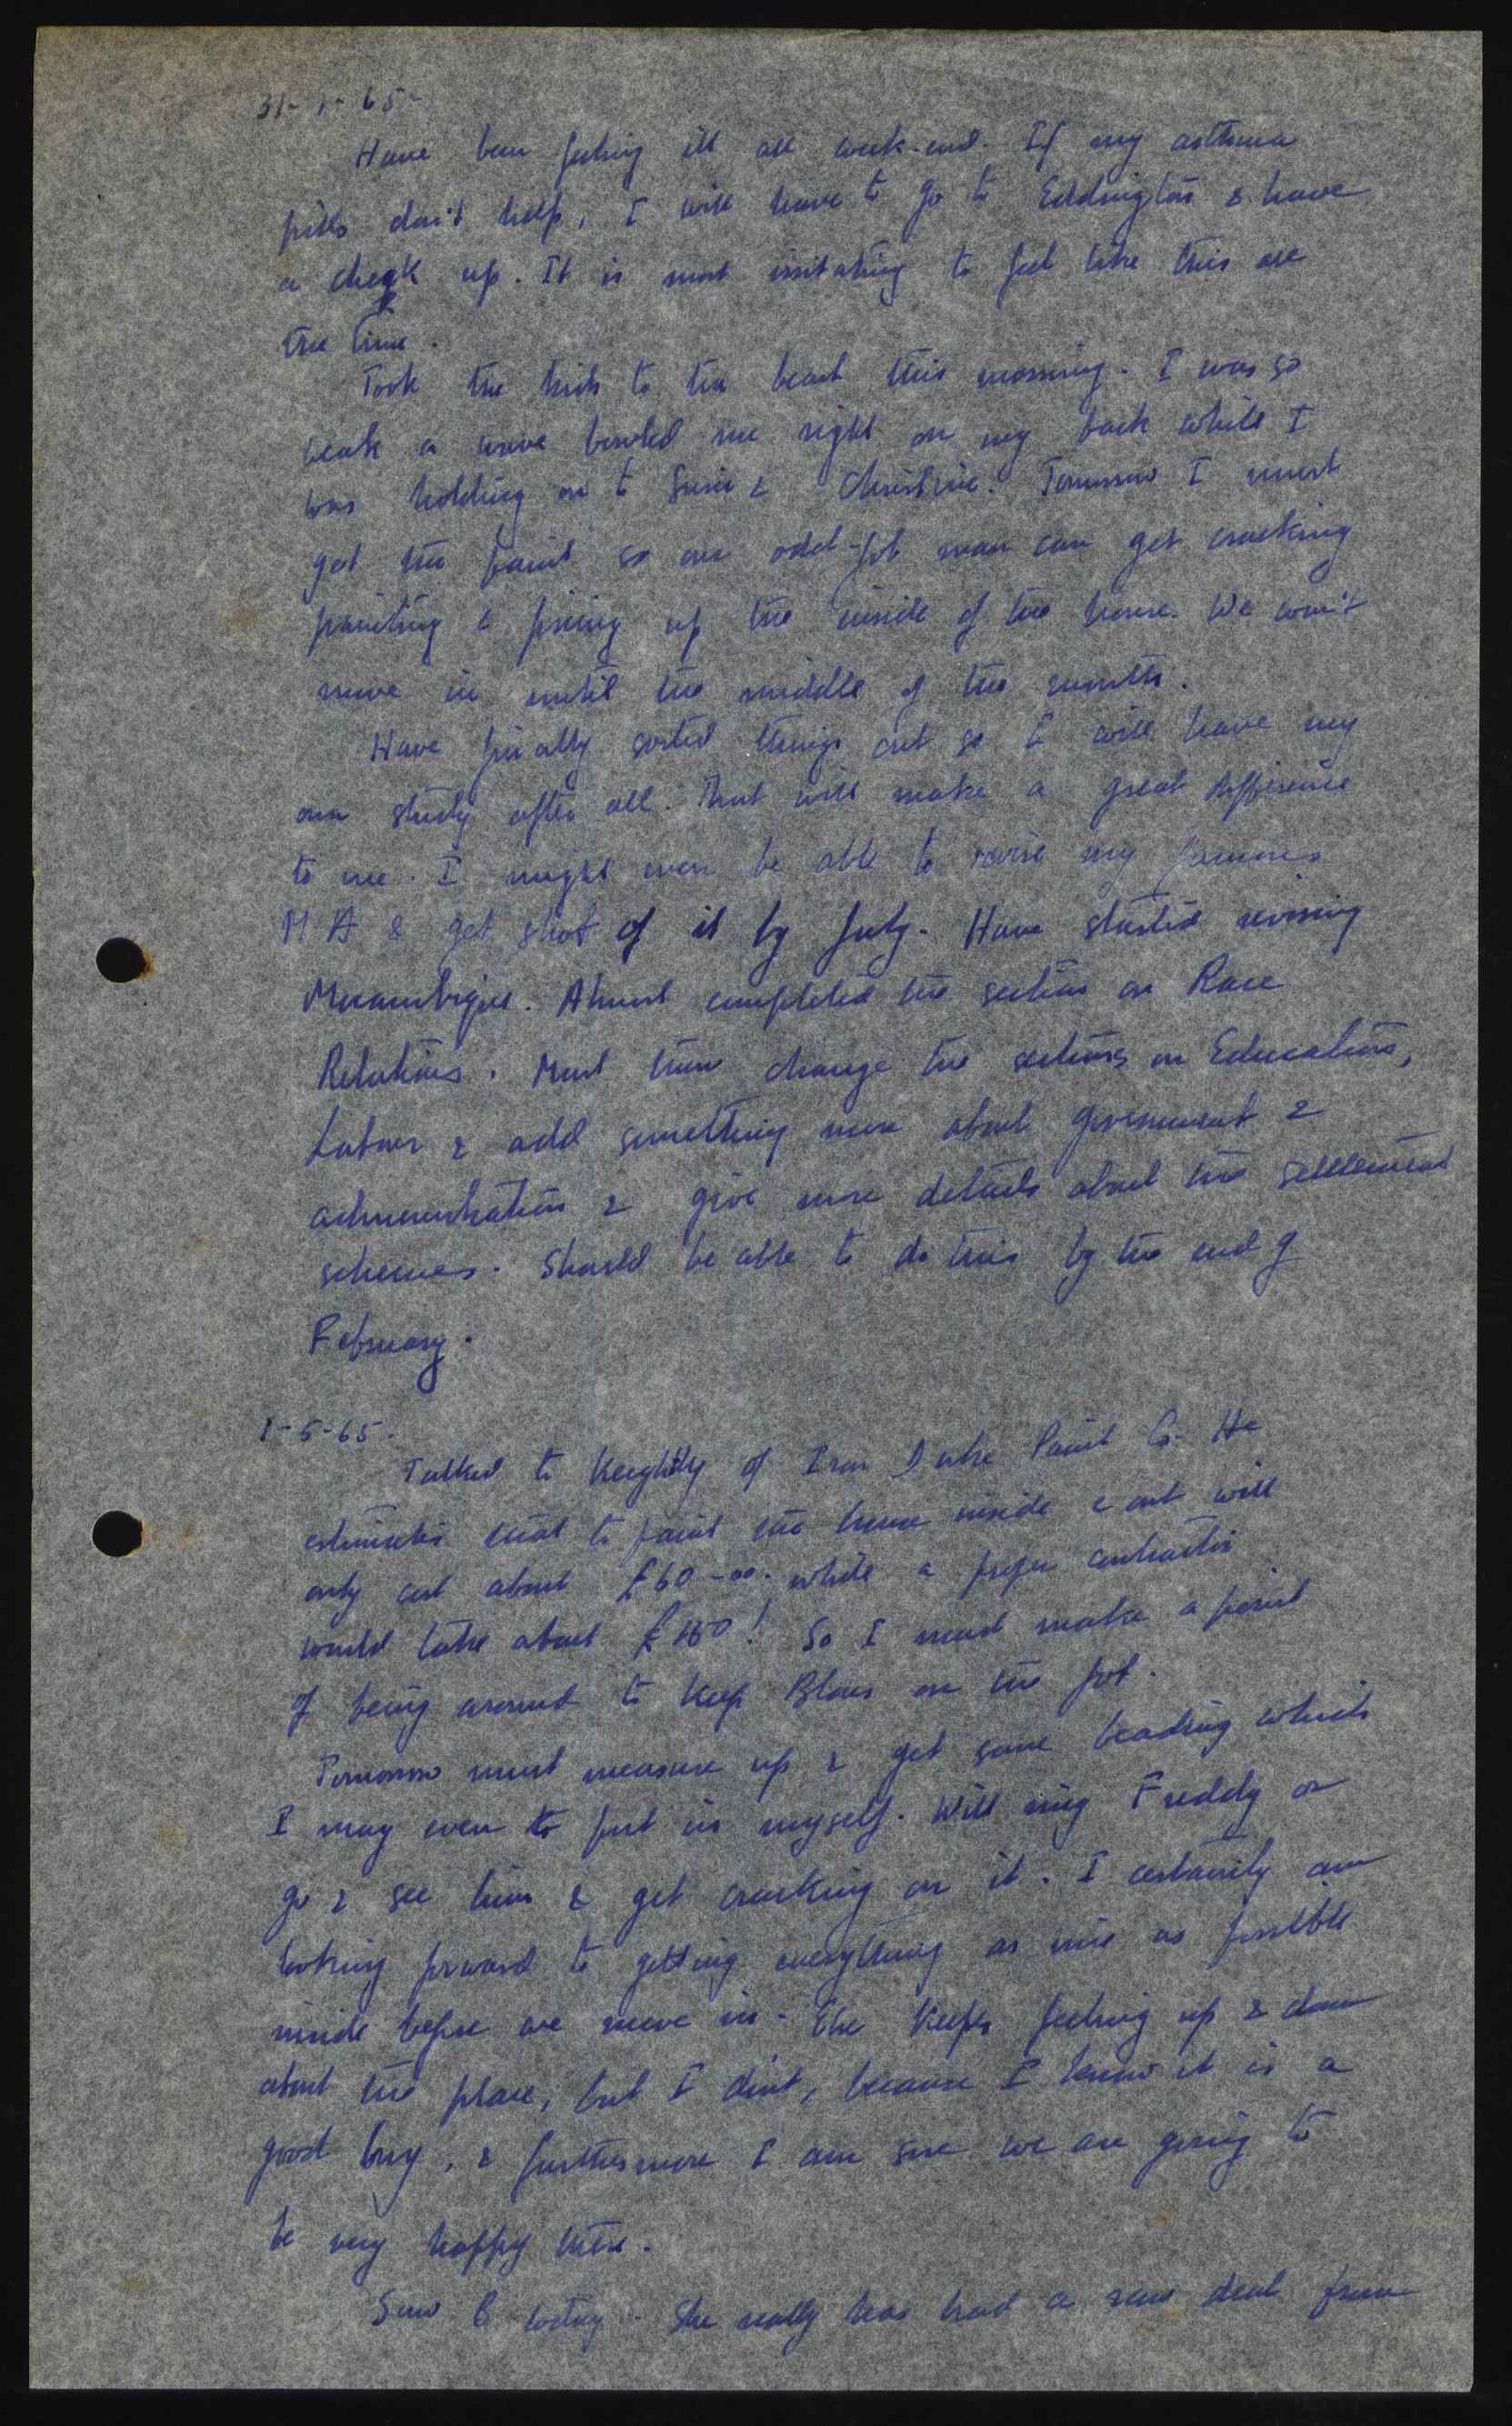 31-1-65-
Have been feeling ill all week-end. If my asthma
pills don't help, I will have to go to Eddington & have
a check up. It is most irritating to feel like this all
the time.
Took the kids to the beach this morning. I was so
weak a wave bowled me right on my back while I
was holding on to Susie & Christine. Tomorrow I must
get the paint so our odd-job man can get cracking
painting & fixing up the inside of the house. We won't
move in until the middle of the month.
Have finally sorted things out so I will have my
own study after all. That will make a great difference
to me. I might even be able to revise my famous
M A & get shot of it by July. Have started revising
Mocambique. Almost completed the section on Race
Relations. Must then change the sections on Education,
Labour & add something more about government &
administration & give more details about the settlement
schemes. Should be able to do this by the end of
February.
1-5-65.
Talked to Keightly of Iron Duke Paint Co. He
estimates that to paint the house inside & out will
only cost about £60-00. while a proper contractor
would take about £150! So I must make a point
of being around to keep Blous on the job.
Tomorrow must measure up & get some beading which
I may even to put in myself. Will ring Freddy or
go & see him & get cracking on it. I certainly am
looking forward to getting everything as nice as possible
inside before we move in. Else keeps feeling up & down
about the place, but I don't, because I know it is a
good buy, & furthermore I am sure we are going to
be very happy there.
Saw C today. She really has had a raw deal from